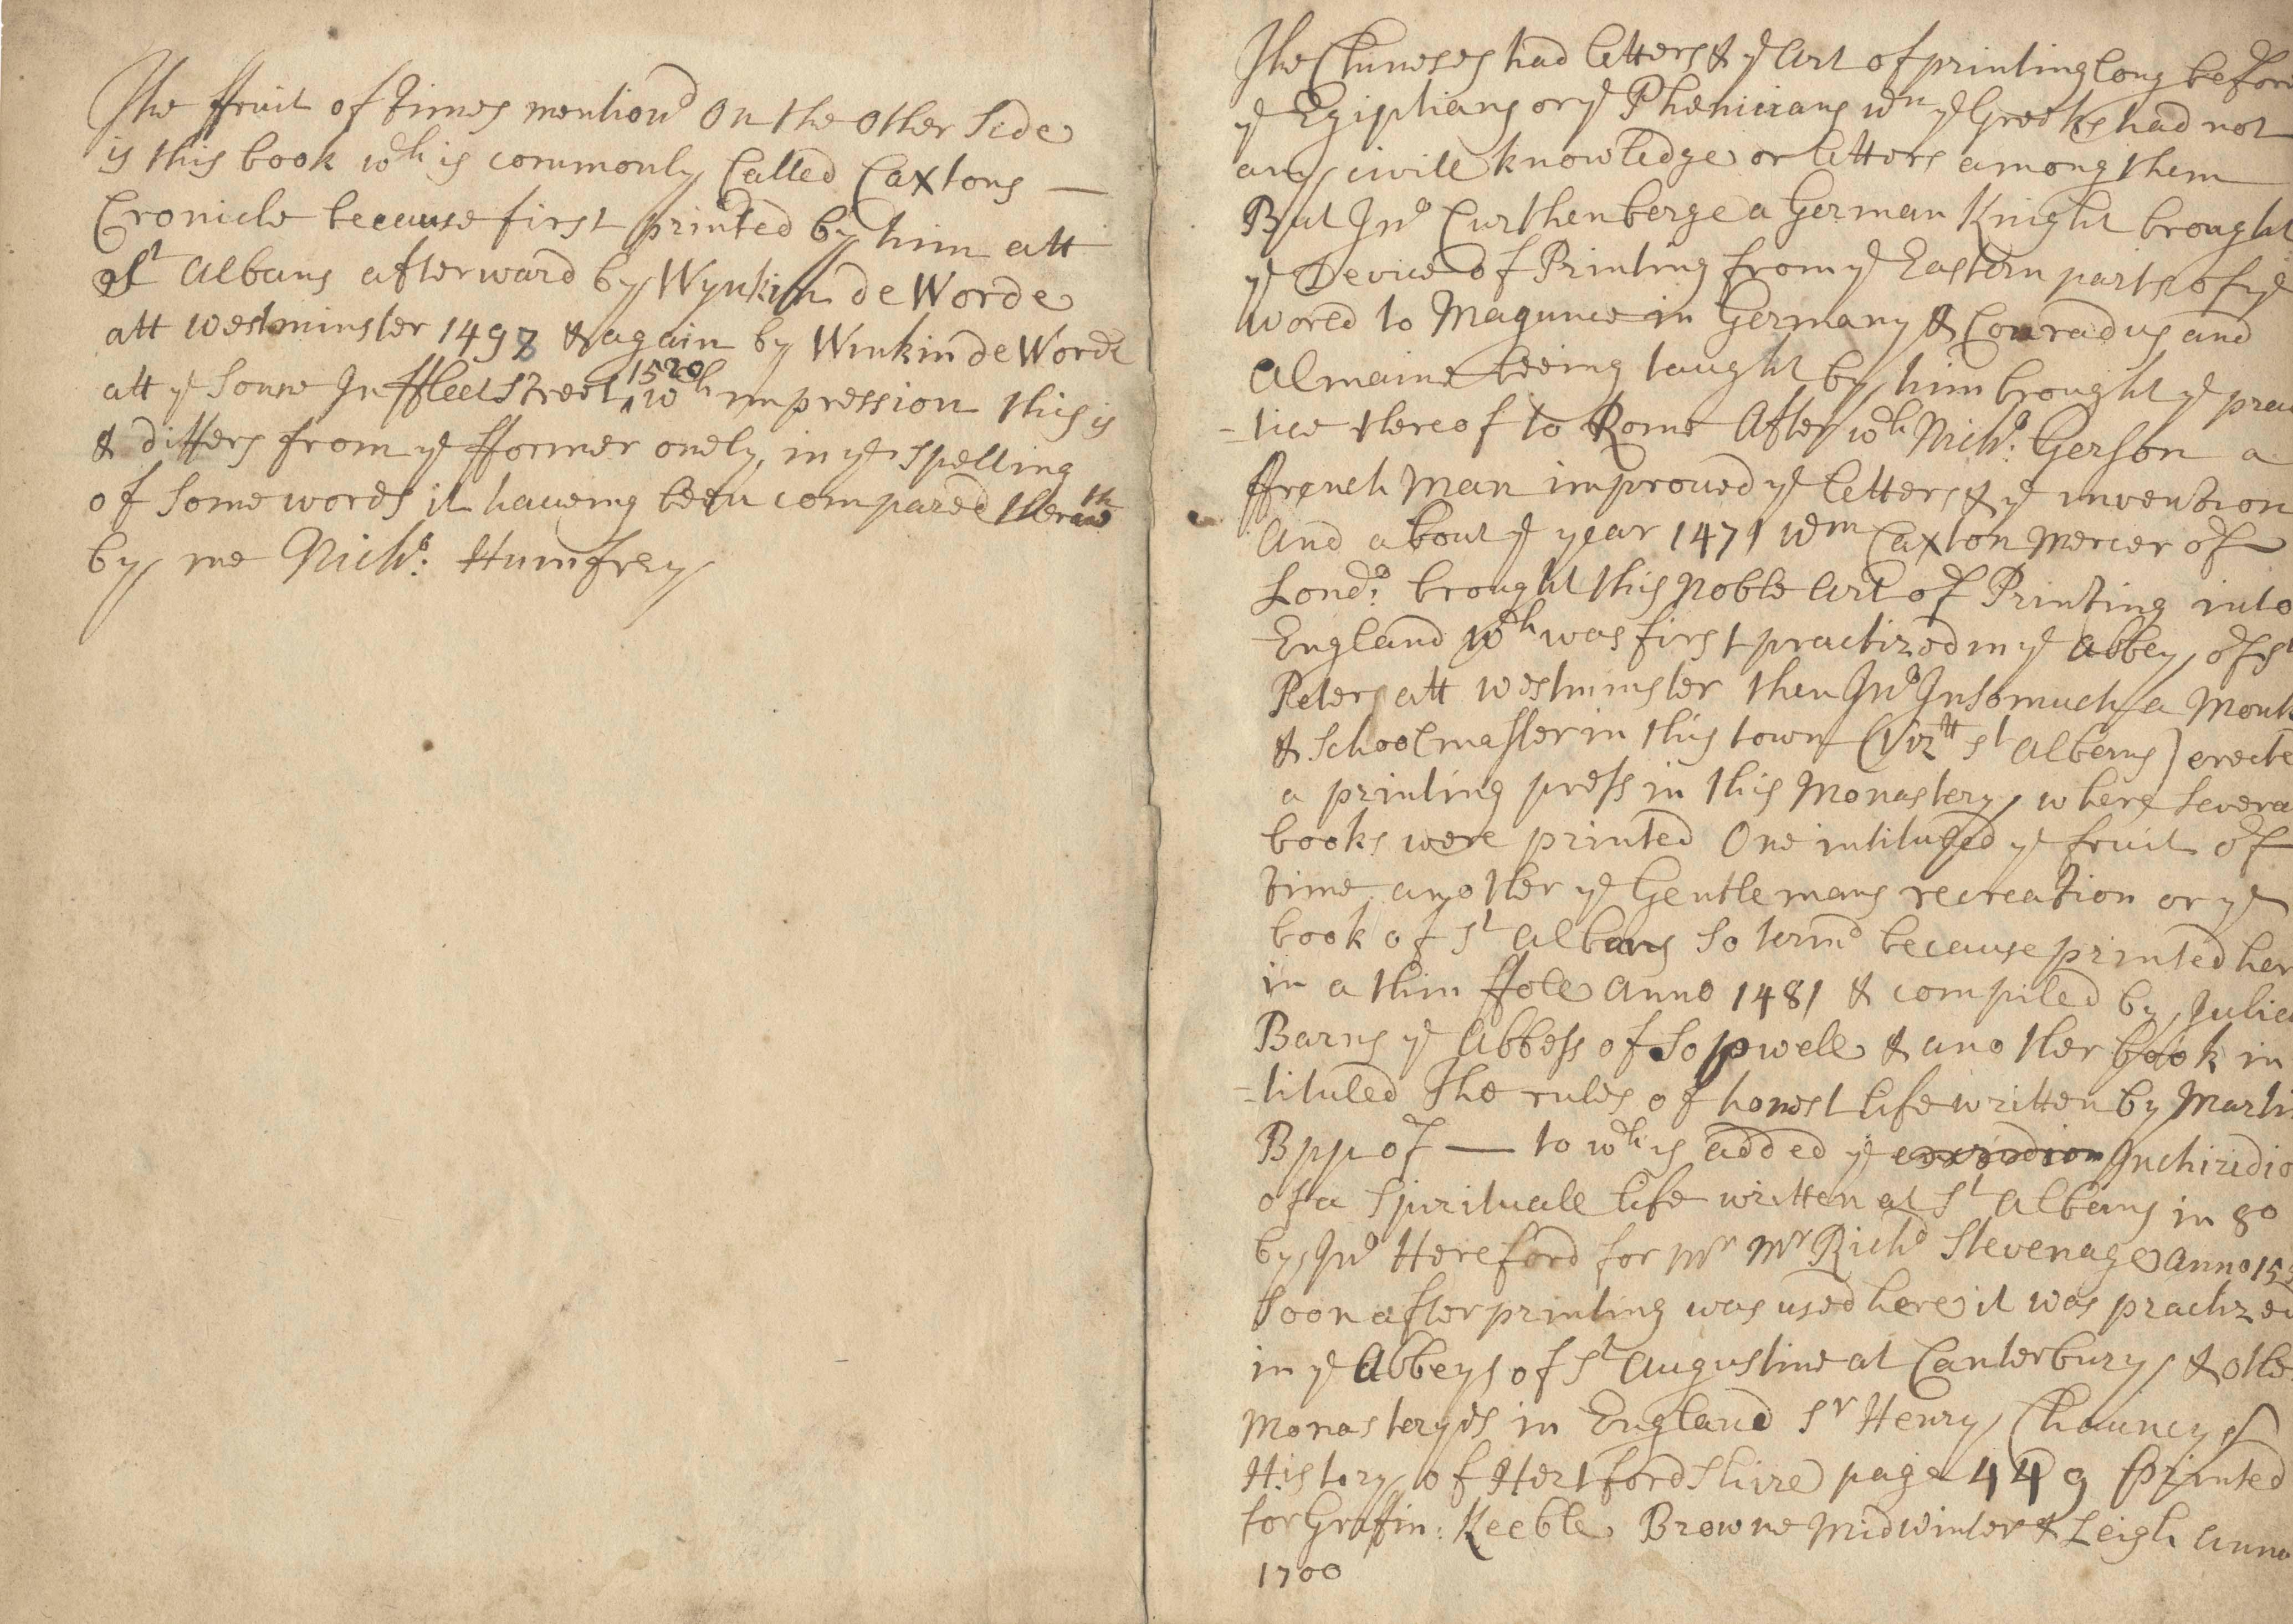 The ffruit of Times mentiond On the other Side
is this book wch is commonly Called Caxtons —
Cronicle because first printed by him att
St Albans afterward by Wynkin de Worde
att westminster 1497 & again by Winkin de Worde
att ye Sonne In ffleet Street 1520 wch impression this is
& differs from ye fformer onely in ye spelling
of Some words it haveing been compared therewth
by me Nicho: Humfrey
The Chineses had letters & ye Art of printing long before
ye Egiptians or ye Phenicians wn ye Greeks had not
any civill knowledge or letters among them
But Jno Curthenberge a German Knight brought
ye Device of Printing from ye Eastern parts of ye
World to Magunce in Germany & Conradus and
Almaine being taught by him brought ye prac
-tice thereof to Rome After wch Nicho: Gerson a
ffrench Man improved ye letters & ye invention
And about ye year 1471 Wm Caxton Mercer of
Londo: brought this noble Art of Printing into
England wch was first practized in ye Abbey of St
Peters att Westminster then Jno Insomuch a Monk
& Schoolmaster in this town (Viztt St Albans) erecte
a printing press in this Monastery where Severa
books were printed One intituled ye fruit of
time another ye Gentlemans recreation or ye
book of St Albans so termd because printed her
in a thin ffole Anno 1481 & compiled by Julia
Barns ye Abbess of Sopwell & another book in
-tituled The rules of honest life written by Marti
Bpp of — to wch is added ye Inchiridio
of a Spirituall life written at St Albans in 8o
by Jno Hereford for Mr Mr Richd Stevenage anno 15
Soon after printing was used here it was practized
in ye Abbeys of St Augustine at Canterbury & othe
Monasteryes in England Sr Henry Chauncys
History of Hertfordshire page 449 Printed
for Griffin: Keeble Browne Midwinter & Leigh Anno
1700